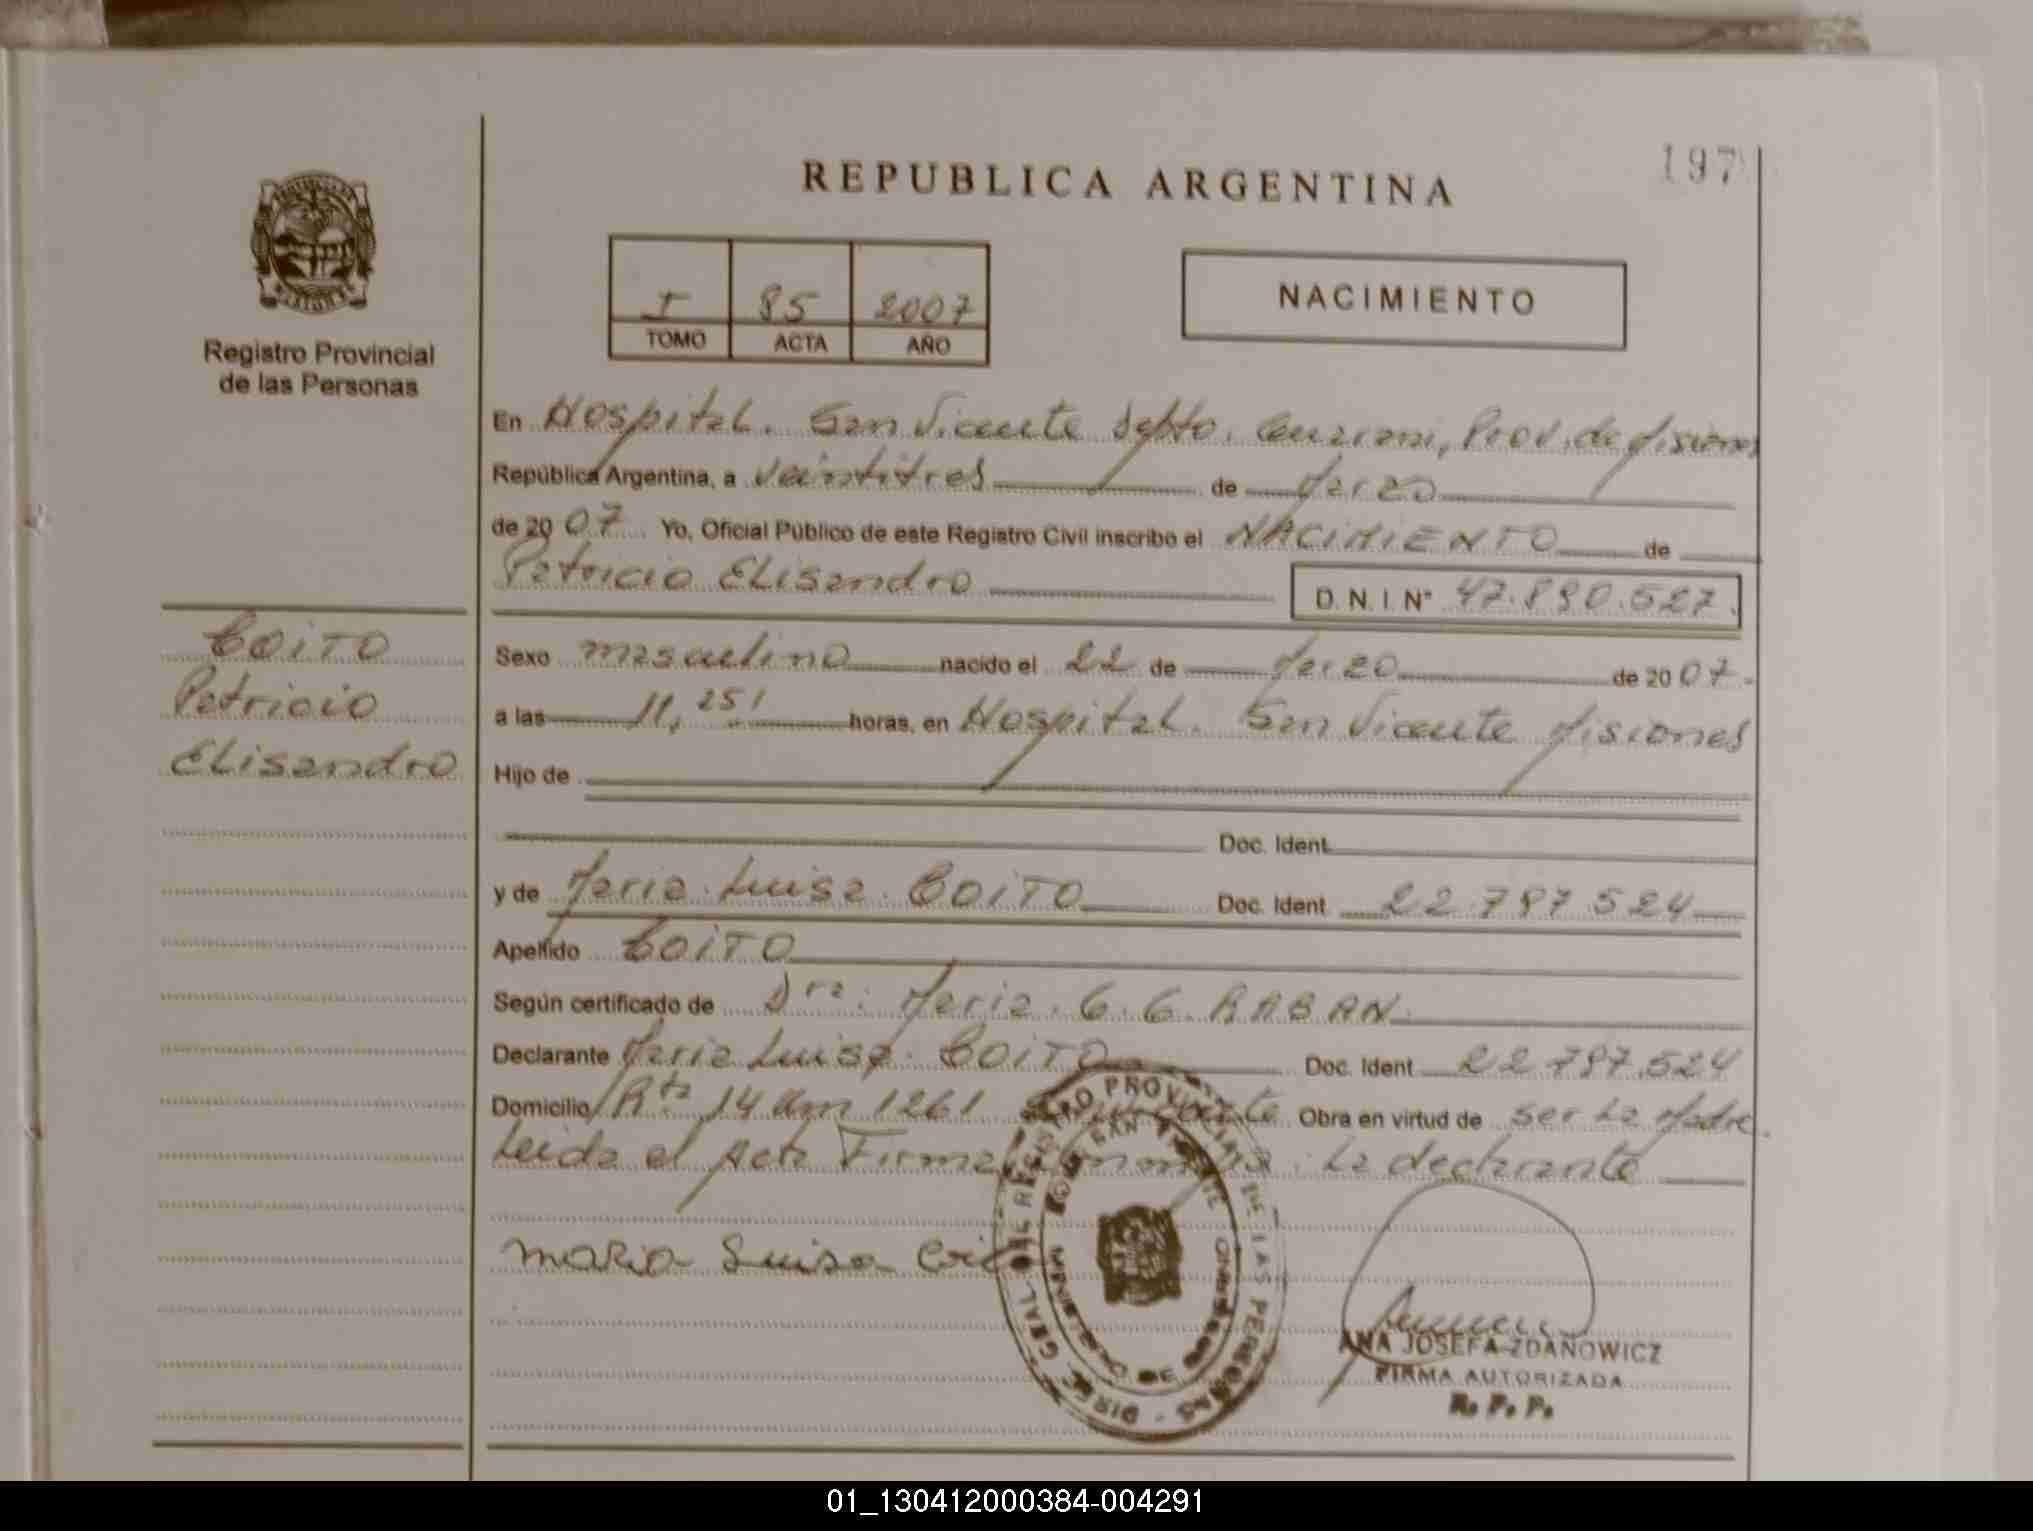 197
REPUBLICA ARGENTINA
I 85 2007
TOMO ACTA AÑO
NACIMIENTO
Registro Provincial
de las Personas
En Hospital. San Vicente Depto. Guarani, Prov. de Misiones
República Argentina, a veintitres de Marzo
de 2007 Yo, Oficial Público de este Registro Civil inscribo el NACIMIENTO de
Patricio Elisandro D. N. I. Nº 47.890.527.
COITO
Patricio
Elisandro
Sexo masculino nacido el 22 de Marzo de 2007.
a las 11,25' horas, en Hospital. San Vicente Misiones
Hijo de
Doc. Ident.
y de Maria Luisa COITO Doc. Ident 22.787.524
Apellido COITO
Según certificado de Dra. Maria. G. G. RABAN
Declarante Maria Luisa COITO Doc. Ident 22.787.524
Domicilio Rta 14 Km 1261 San Vicente Obra en virtud de ser La Madre.
Leida el Acta Firma La declarante
Maria Luisa
DIR. GRAL. DEL REGISTRO PROVINCIAL DE LAS PERSONAS
ANA JOSEFA ZDANOWICZ
FIRMA AUTORIZADA
R. P. P.
01_130412000384-004291